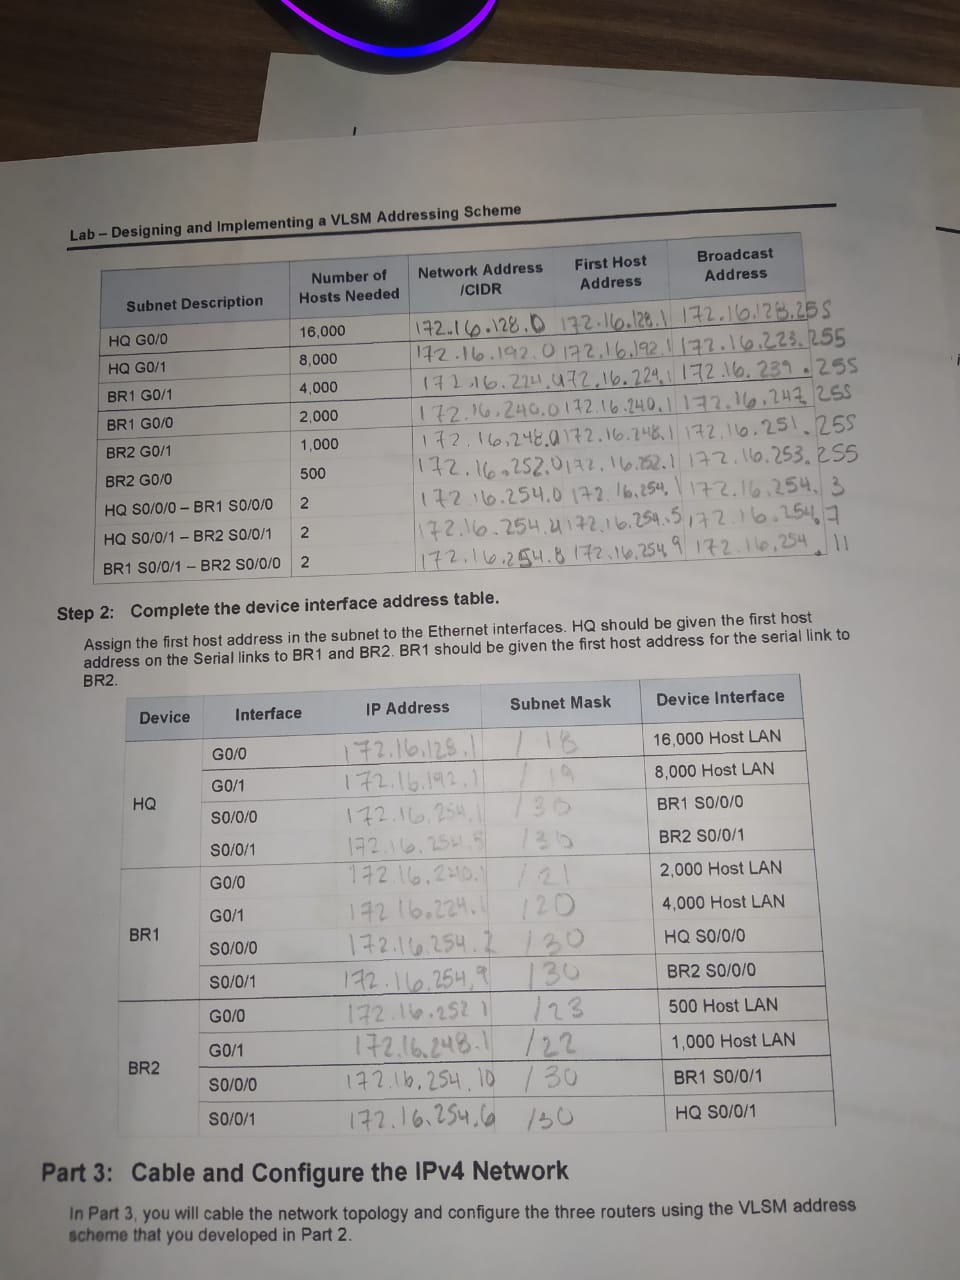 Lab – Designing and Implementing a VLSM Addressing Scheme
Subnet Description Number of Hosts Needed Network Address /CIDR First Host Address Broadcast Address
HQ G0/0 16,000 172.16.128.0 172.16.128.1 172.16.128.255
HQ G0/1 8,000 172.16.192.0 172.16.192.1 172.16.223.255
BR1 G0/1 4,000 172.16.224.1 172.16.239.255
BR1 G0/0 2,000 172.16.240.0 172.16.240.1 172.16.247.255
BR2 G0/1 1,000 172.16.248.0 172.16.248.1 172.16.251.255
BR2 G0/0 500 172.16.252.0 172.16.252.1 172.16.253.255
HQ S0/0/0 – BR1 S0/0/0 2 172.16.254.0 172.16.254.1 172.16.254.3
HQ S0/0/1 – BR2 S0/0/1 2 172.16.254.4 172.16.254.5 172.16.254.7
BR1 S0/0/1 – BR2 S0/0/0 2 172.16.254.8 172.16.254.9 172.16.254.11
Step 2: Complete the device interface address table.
Assign the first host address in the subnet to the Ethernet interfaces. HQ should be given the first host
address on the Serial links to BR1 and BR2. BR1 should be given the first host address for the serial link to
BR2.
Device Interface IP Address Subnet Mask Device Interface
G0/0 172.16.128.1 /18 16,000 Host LAN
G0/1 172.16.192.1 /19 8,000 Host LAN
HQ
S0/0/0 172.16.254.1 /30 BR1 S0/0/0
S0/0/1 172.16.254.5 /30 BR2 S0/0/1
G0/0 172.16.240.1 /21 2,000 Host LAN
G0/1 172.16.224.1 /20 4,000 Host LAN
BR1
S0/0/0 172.16.254.2 /30 HQ S0/0/0
S0/0/1 172.16.254.9 /30 BR2 S0/0/0
G0/0 172.16.252.1 /23 500 Host LAN
G0/1 172.16.248.1 /22 1,000 Host LAN
BR2
S0/0/0 172.16.254.10 /30 BR1 S0/0/1
S0/0/1 172.16.254.6 /30 HQ S0/0/1
Part 3: Cable and Configure the IPv4 Network
In Part 3, you will cable the network topology and configure the three routers using the VLSM address
scheme that you developed in Part 2.